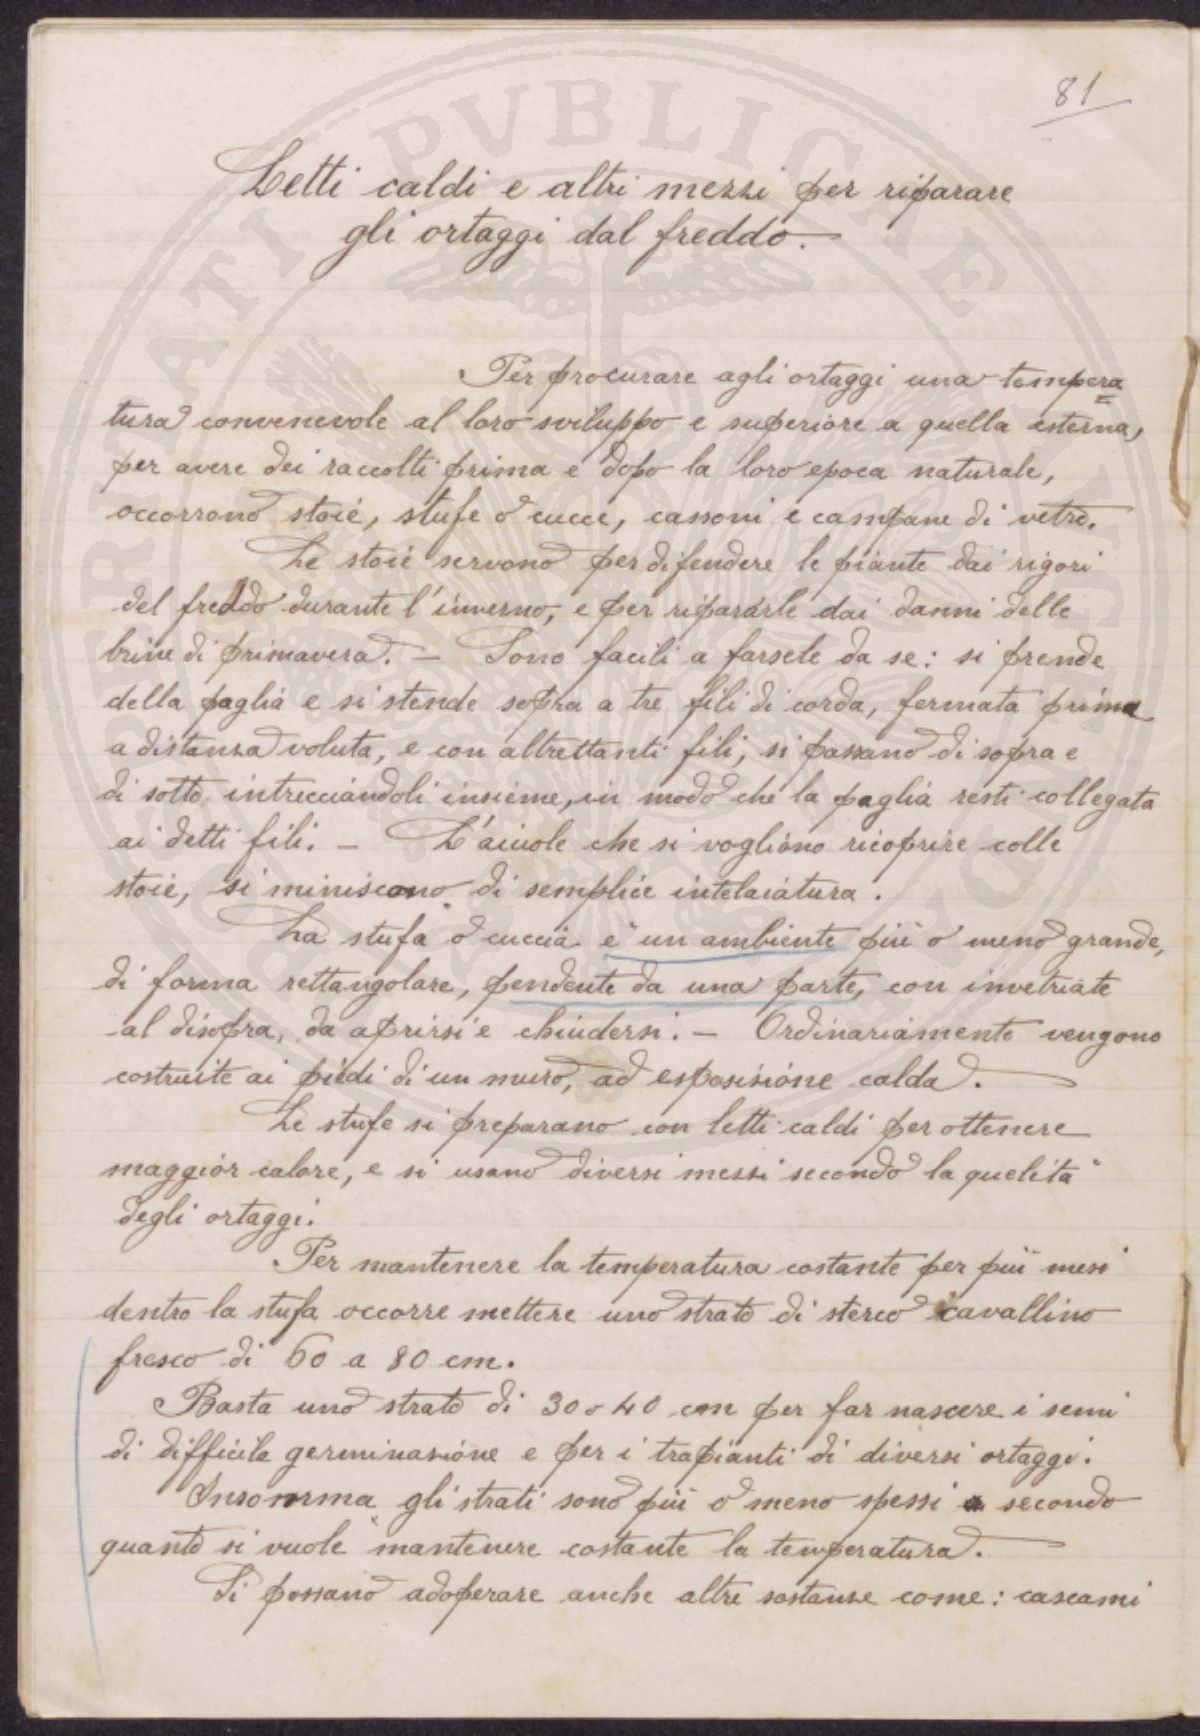 81
Letti caldi e altri mezzi per riparare
gli ortaggi dal freddo.
Per procurare agli ortaggi una tempera
tura convenevole al loro sviluppo e superiore a quella esterna,
per avere dei raccolti prima e dopo la loro epoca naturale,
occorrono stoie, stufe o cucce, cassoni e campane di vetro.
Le stoie servono per difendere le piante dai rigori
del freddo durante l'inverno, e per ripararle dai danni delle
brine di primavera. — Sono facili a farsele da se: si prende
della paglia e si stende sopra a tre fili di corda, fermata prima
a distanza voluta, e con altrettanti fili, si passano di sopra e
di sotto intrecciandoli insieme, in modo che la paglia resti collegata
ai detti fili. — L'aiuole che si vogliono ricoprire colle
stoie, si muniscono di semplice intelaiatura.
La stufa o cuccia è un ambiente più o meno grande,
di forma rettangolare, pendente da una parte, con invetriate
al disopra, da aprirsi e chiudersi. — Ordinariamente vengono
costruite ai piedi di un muro, ad esposizione calda.
Le stufe si preparano con letti caldi per ottenere
maggior calore, e si usano diversi mezzi secondo la quelità
degli ortaggi.
Per mantenere la temperatura costante per più mesi
dentro la stufa occorre mettere uno strato di sterco cavallino
fresco di 60 a 80 cm.
Basta uno strato di 30 o 40 cm per far nascere i semi
di difficile germinazione e per i trapianti di diversi ortaggi.
Insomma gli strati sono più o meno spessi a secondo
quanto si vuole mantenere costante la temperatura.
Si possano adoperare anche altre sostanze come: cascami